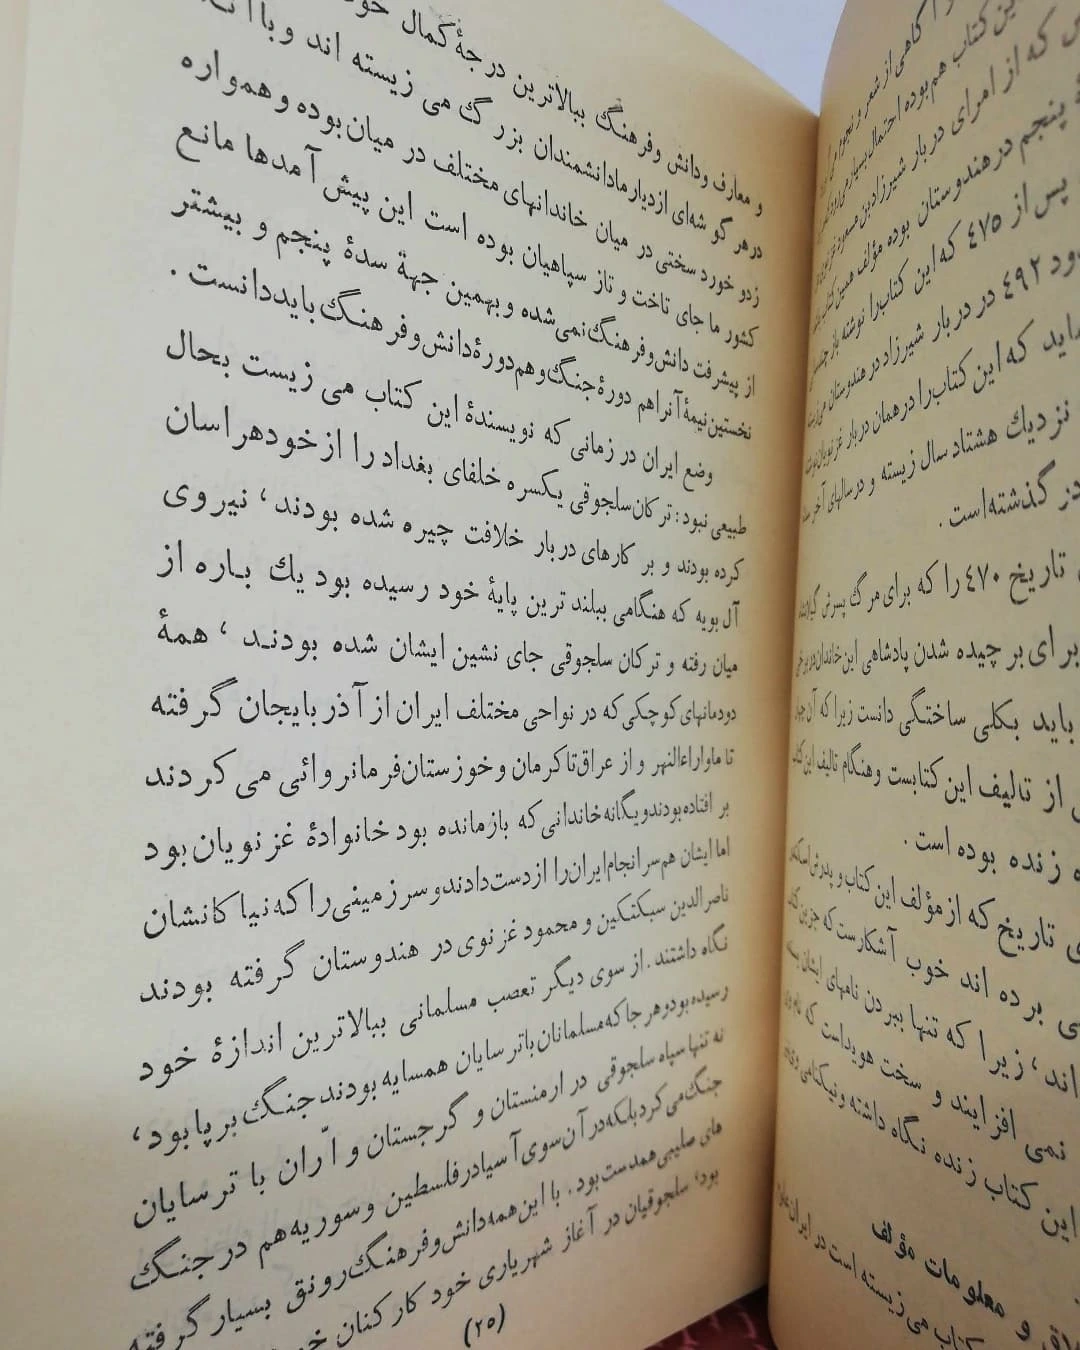 و معارف ودانش وفرهنگ ببالاترین درجهٔ کمال
درهر گوشه‌ای ازدیار مادانشمندان بزرگ می زیسته اند و با
زدو خورد سختی در میان خاندانهای مختلف در میان بوده و همواره
کشور ما جای تاخت و تاز سپاهیان بوده است این پیش آمدها مانع
از پیشرفت دانش وفرهنگ نمی شده و بهمین جهة سدهٔ پنجم و بیشتر
نخستین نیمهٔ آنراهم دورهٔ جنگ وهم دورهٔ دانش وفرهنگ باید دانست .
وضع ایران در زمانی که نویسندهٔ این کتاب می زیست بحال
طبیعی نبود : ترکان سلجوقی یکسره خلفای بغداد را از خود هراسان
کرده بودند و بر کارهای دربار خلافت چیره شده بودند ، نیروی
آل بویه که هنگامی ببلند ترین پایهٔ خود رسیده بود یك باره از
میان رفته و ترکان سلجوقی جای نشین ایشان شده بودنـد ، همهٔ
دودمانهای کوچکی که در نواحی مختلف ایران از آذربایجان گرفته
تا ماوراءالنهر و از عراق تا کرمان و خوزستان فرمانروائی می کردند
بر افتاده بودند ویگانه خاندانی که بازمانده بود خانوادهٔ غزنویان بود
اما ایشان هم سرانجام ایران را ازدست دادند و سرزمینی را که نیاکانشان
ناصرالدین سبکتکین و محمود غزنوی در هندوستان گرفته بودند
نگاه داشتند . از سوی دیگر تعصب مسلمانی ببالاترین اندازهٔ خود
رسیده بود وهرجا که مسلمانان با ترسایان همسایه بودند جنگ برپا بود ،
نه تنها سپاه سلجوقی در ارمنستان و گرجستان و ارّان با ترسایان
جنگ می کرد بلکه در آن سوی آسیا در فلسطین و سوریه هم در جنگ
های صلیبی همدست بود . با این همه دانش وفرهنگ رونق بسیار گرفته
بود ، سلجوقیان در آغاز شهریاری خود کارکنان
(۲۵)
گاهی از شعر و نجوم
این کتاب هم بوده احتمال بسیار می رود
که از امرای دربار شیرزاد بن مسعود
پنجم در هندوستان بوده مؤلف همین کتاب
پس از ٤٧٥ که این کتاب را نوشته باز
٤٩٢ در دربار شیرزاد در هندوستان
که این کتاب را در همان دربار غزنویان
نزدیك هشتاد سال زیسته و در سالهای آخر
در گذشته است .
تاریخ ٤٧٠ را که برای مرگ پسرش گیلانشاه
برای بر چیده شدن پادشاهی این خاندان
باید بکلی ساختگی دانست زیرا که آن
از تالیف این کتابست و هنگام تالیف این
زنده بوده است .
تاریخ که از مؤلف این کتاب و پدرش
برده اند خوب آشکارست که جز این
اند ، زیرا که تنها ببردن نامهای ایشان
نمی افزایند و سخت هویداست که نام
این کتاب زنده نگاه داشته و نیکنامی
و معلومات مؤلف
کتاب می زیسته است در ایران